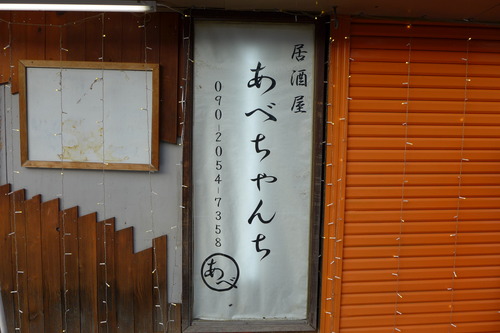 居酒屋
あべちゃんち
090-2054-7358
あべ